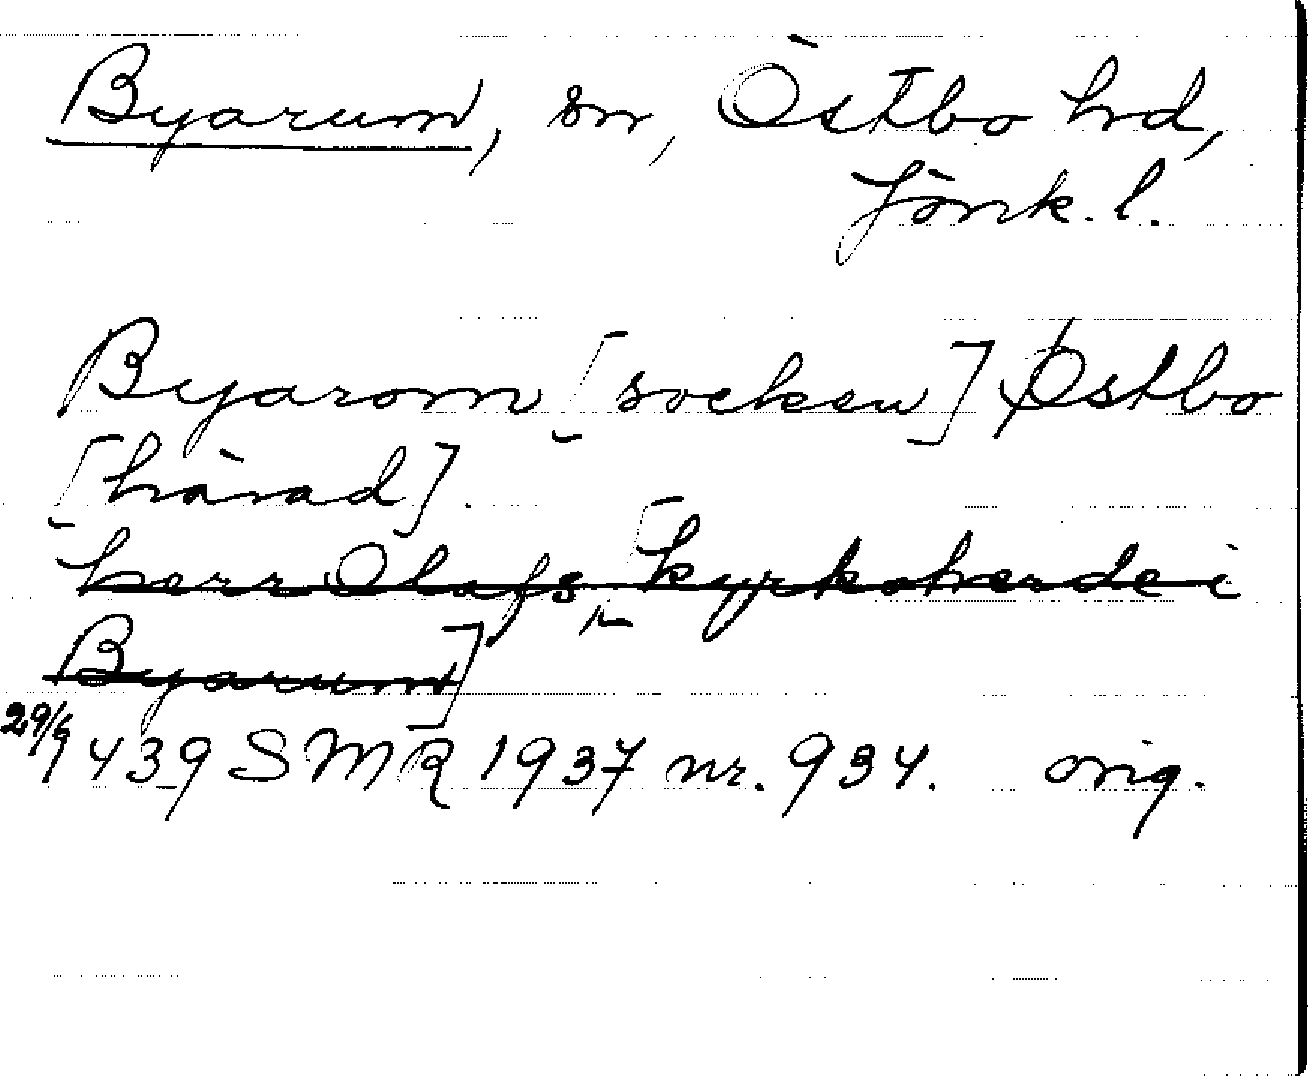 Byarum, sn, Östbo hd,
Jönk. l.
Byarom [socken] Østbo
[härad].
herr Olafs, [kyrkoherde i
Byarum]
29/6 1439 SMR 1937 nr. 934. orig.